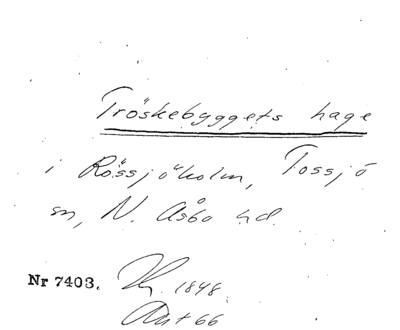 Tröskebyggets hage
i Rössjöholm, Tossjö
sn, N. Åsbo hd.
Nr 7403. 1848.
Akt 66